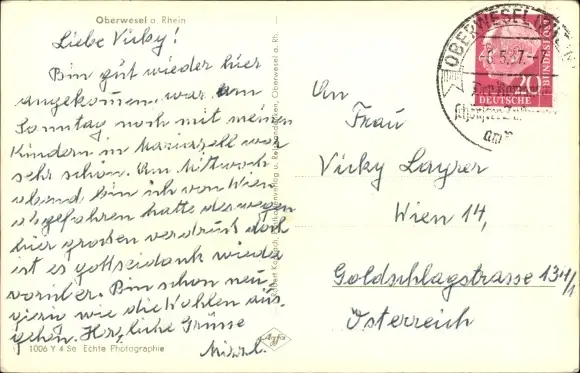 Oberwesel a. Rhein
Liebe Vicky!
Bin gut wieder hier
angekommen, war am
Sonntag noch mit meinen
Kindern in Mariazell war
sehr schön. Am Mittwoch
abend bin ich von Wien
abgefahren hatte deswegen
hier großen verdruß doch
ist es gottseidank wieder
vorüber. Bin schon neu-
gierig wie die Wahlen aus-
gehen. Herzliche Grüsse
Mizzl.
1006 Y 4 Se Echte Photographie
Agfa
Ansichtskartenverlag u.
Oberwesel a. Rh.
OBERWESEL
-6.5.57.-7
20
DEUTSCHE
BUNDESPOST
An
Frau
Vicky Layrer
Wien 14,
Goldschlagstrasse 134/1
Österreich